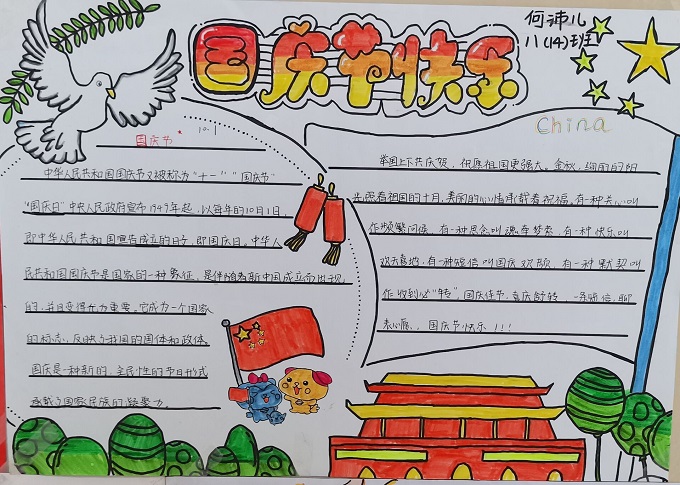 国庆节快乐
何沛儿
八(14)班
China
国庆节
10.1
中华人民共和国国庆节又被称为"十一""国庆节"
"国庆日"中央人民政府宣布1949年起,以每年的10月1日,
即中华人民共和国宣告成立的日子,即国庆日。中华人
民共和国国庆节是国家的一种象征,是伴随着新中国成立而出现
的,并且变得尤为重要。它成为一个国家
的标志,反映了我国的国体和政体。
国庆是一种新的、全民性的节日形式
承载了国家民族的凝聚力。
举国上下共庆贺,但愿祖国更强大。金秋,绚丽的阳
光照着祖国的十月,美丽的心情承载着祝福。有一种关心叫
作频繁问候,有一种思念叫魂牵梦萦,有一种快乐叫
欢天喜地,有一种短信叫国庆欢颜,有一种默契叫
作收到必"转",国庆佳节,喜庆舒转 一条短信,聊
表心愿,国庆节快乐!!!